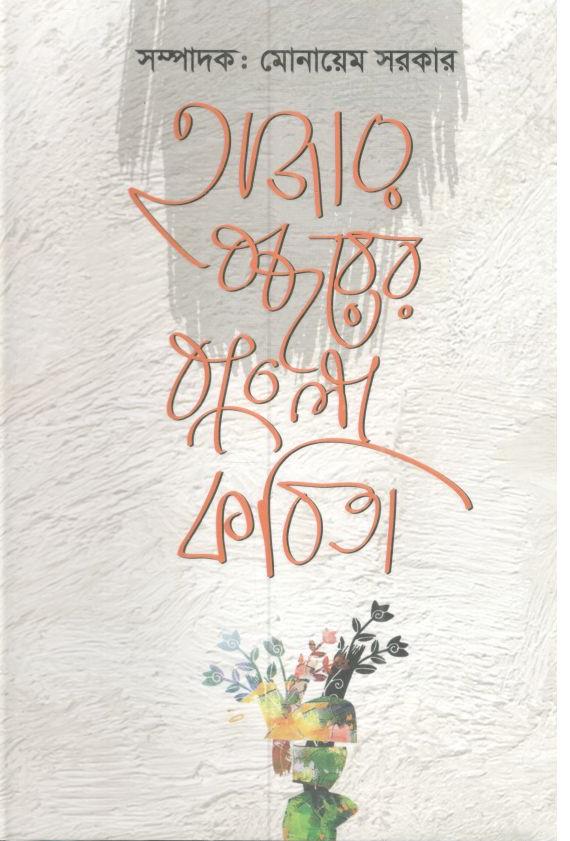 সম্পাদক: মোনায়েম সরকার
হাজার
বছরের
বাংলা
কবিতা